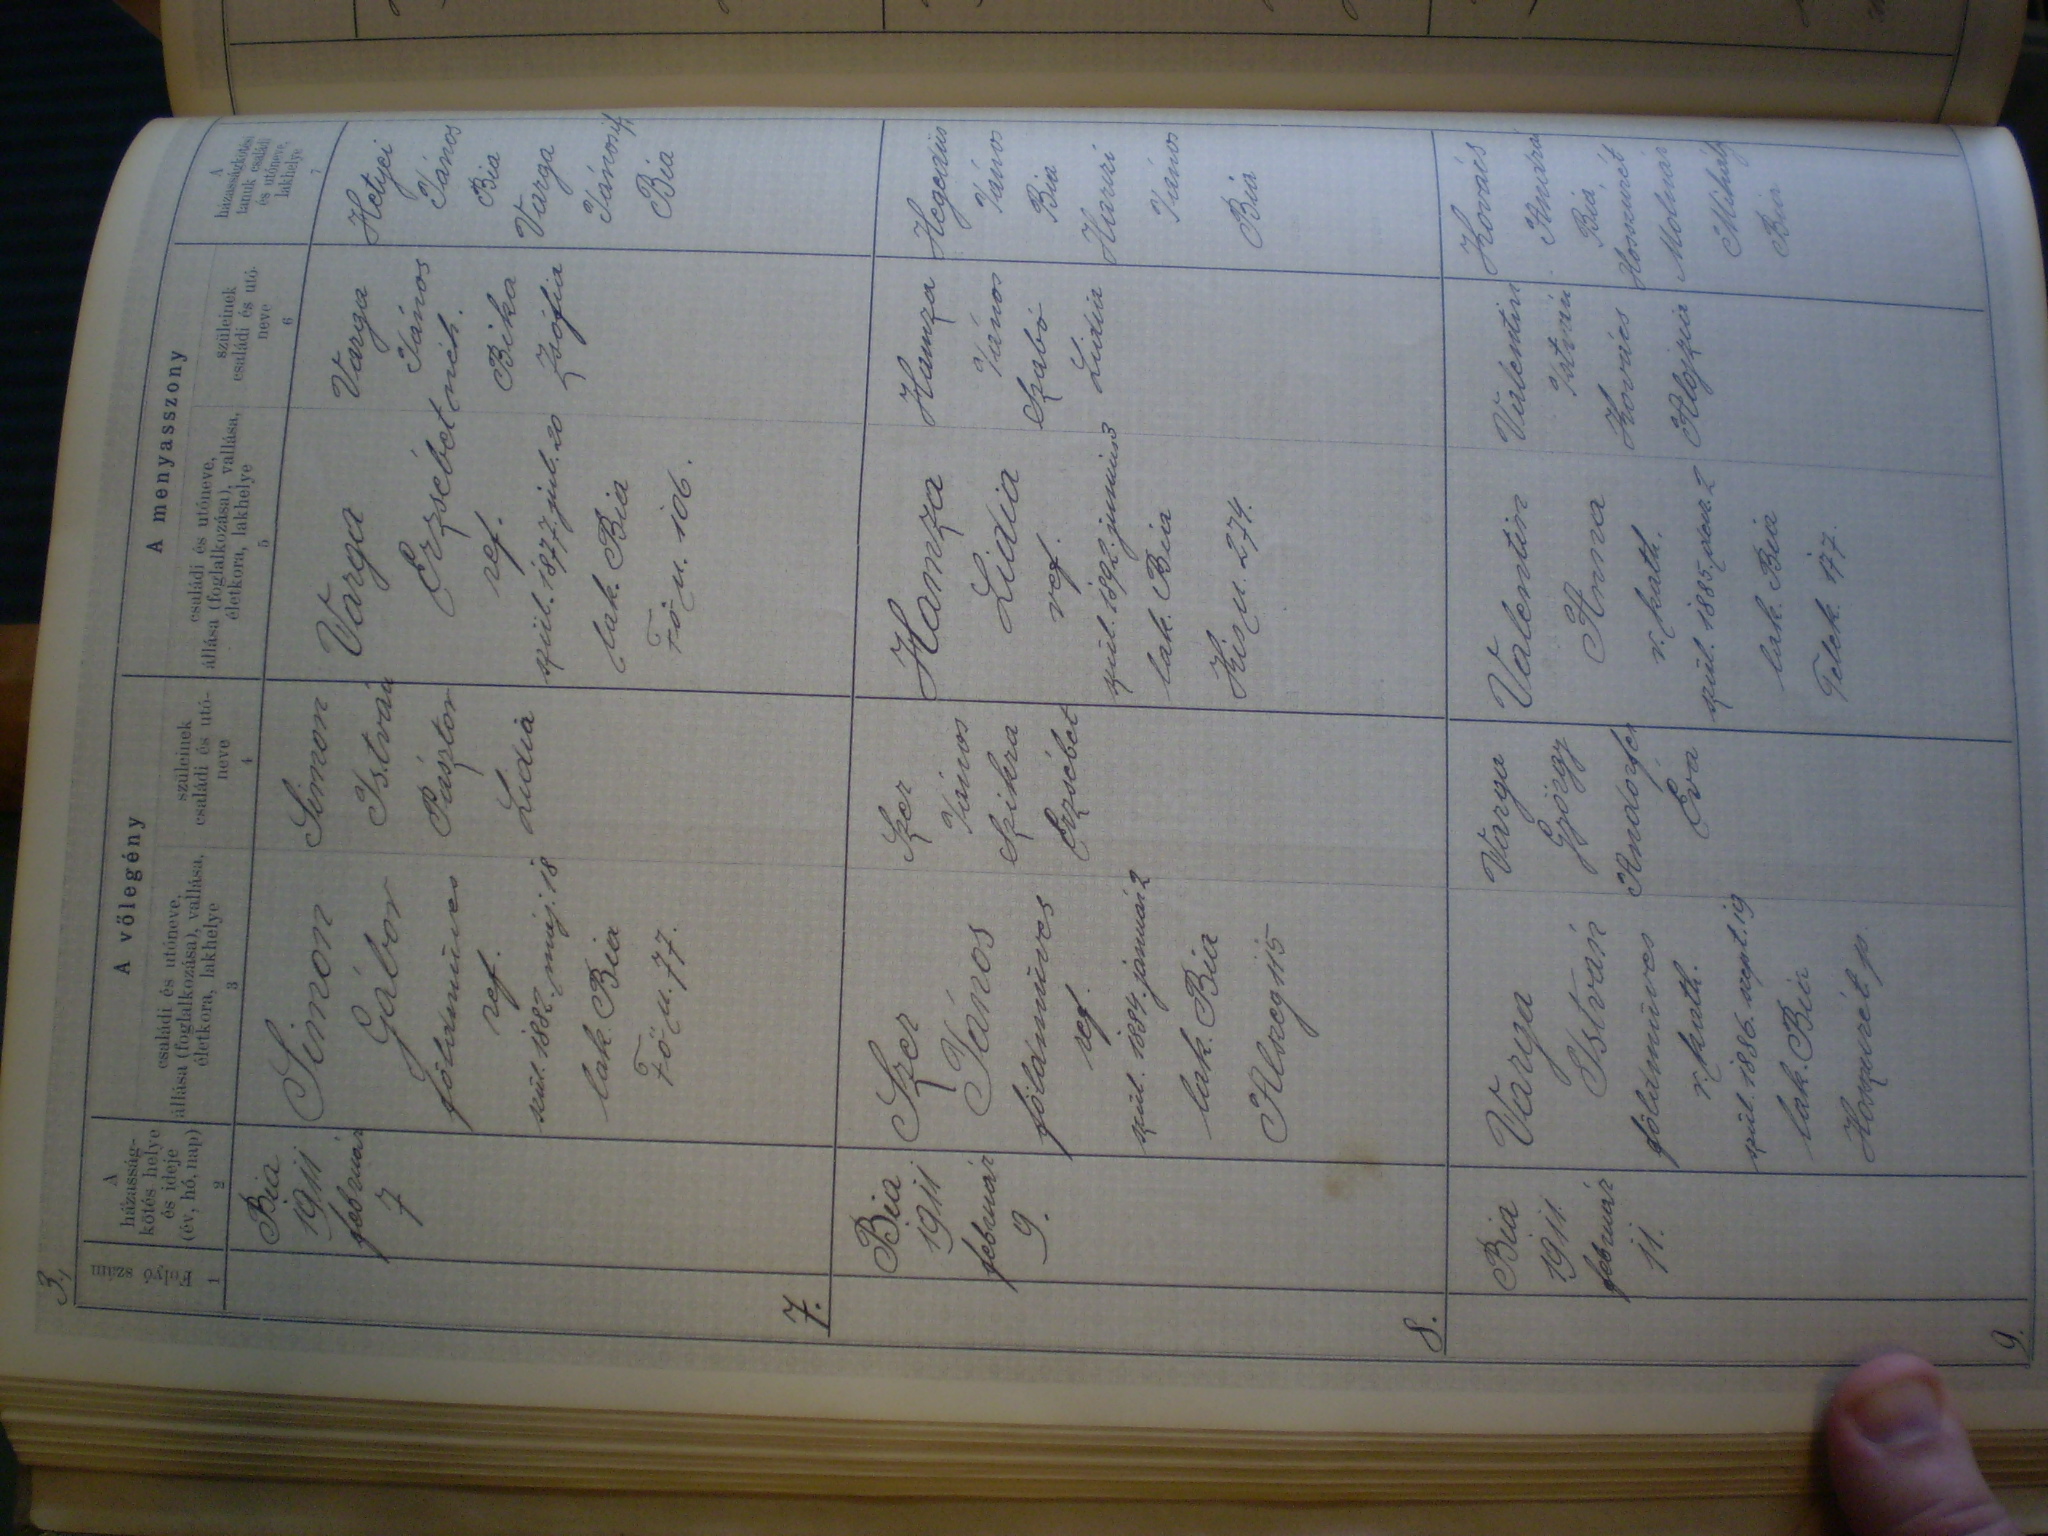 3,
A vőlegény
A menyasszony
Folyó szám
A
házasság-
kötés helye
és ideje
(év, hó, nap)
családi és utóneve,
állása (foglalkozása), vallása,
életkora, lakhelye
szüleinek
családi és utó-
neve
családi és utóneve,
állása (foglalkozása), vallása,
életkora, lakhelye
szüleinek
családi és utó-
neve
A
házasságkötési
tanuk családi
és utóneve,
lakhelye
1
2
3
4
5
6
7
7.
Bia
1911
február
7
Simon
Gábor
földmüves
ref.
szül. 1882. máj. 18
lak. Bia
Fő u. 77.
Simon
István
Pásztor
Lidia
Varga
Erzsébet
ref.
szül. 1877. jul. 20
lak. Bia
Fő u. 106.
Varga
János
méh.
Bika
Zsófia
Hetyei
János
Bia
Varga
János if
Bia
8.
Bia
1911
február
9.
Szer
János
földmüves
ref.
szül. 1884. január 2
lak. Bia
Alszeg 115
Szer
János
Szikra
Erzsébet
Hamza
Lidia
ref.
szül. 1892. junius 3
lak. Bia
Kis u. 274.
Hamza
János
Szabó
Lidia
Hegedüs
János
Bia
János
Bia
9.
Bia
1911.
február
11.
Varga
István
földmüves
r. kath.
szül. 1886. szept. 19
lak. Bia
Hosszurét p.
Varga
György
Éva
Valentin
Anna
r. kath.
szül. 1885. dec. 2
lak. Bia
Telek. 177.
Valentin
István
Kovács
Alojzia
Kovács
András
Bia
Hosszurét
Molnár
Mihály
Bia